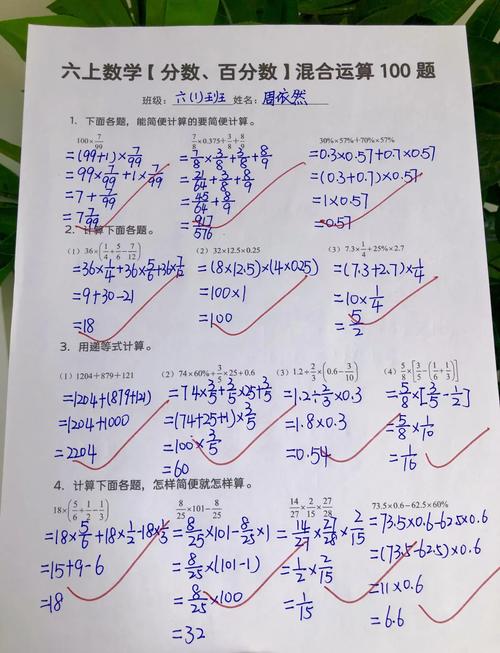 六上数学【分数、百分数】混合运算100题
班级：六(1)班 姓名：周依然
1. 下面各题，能简便计算的要简便计算。
100×7/99
=(99+1)×7/99
=99×7/99+1×7/99
=7+7/99
=7 7/99
7/8×0.375+3/8+8/9
=7/8×3/8+3/8+8/9
=21/64+3/8+8/9
=45/64+8/9
=917/576
30%×57%+70%×57%
=0.3×0.57+0.7×0.57
=(0.3+0.7)×0.57
=1×0.57
=0.57
2. 计算下面各题。
(1) 36×(1/4+5/6-7/12)
=36×1/4+36×5/6+36×7/
=9+30-21
=18
(2) 32×12.5×0.25
=(8×12.5)×(4×0.25)
=100×1
=100
(3) 7.3×1/4+25%×2.7
=(7.3+2.7)×1/4
=10×1/4
=5/2
3. 用递等式计算。
(1) 1204+879+121
=1204+(879+121)
=1204+1000
=2204
(2) 74×60%+3/5×25+0.6
=74×3/5+3/5×25+3/5
=(74+25+1)×3/5
=100×3/5
=60
(3) 1.2÷2/3×(0.6-3/10)
=1.2÷2/3×0.3
=1.8×0.3
=0.54
(4) 5/8×[3/5-(1/6+1/3)]
=5/8×[3/5-1/2]
=5/8×1/10
=1/16
4. 计算下面各题，怎样简便就怎样算。
18×(5/6+1/2-1/3)
=18×5/6+18×1/2-18×1/3
=15+9-6
=18
8/25×101-8/25
=8/25×101-8/25×1
=8/25×(101-1)
=8/25×100
=32
14/27×2/15×27/28
=14/27×27/28×2/15
=1/2×2/15
=1/15
73.5×0.6-62.5×60%
=73.5×0.6-62.5×0.6
=(73.5-62.5)×0.6
=11×0.6
=6.6